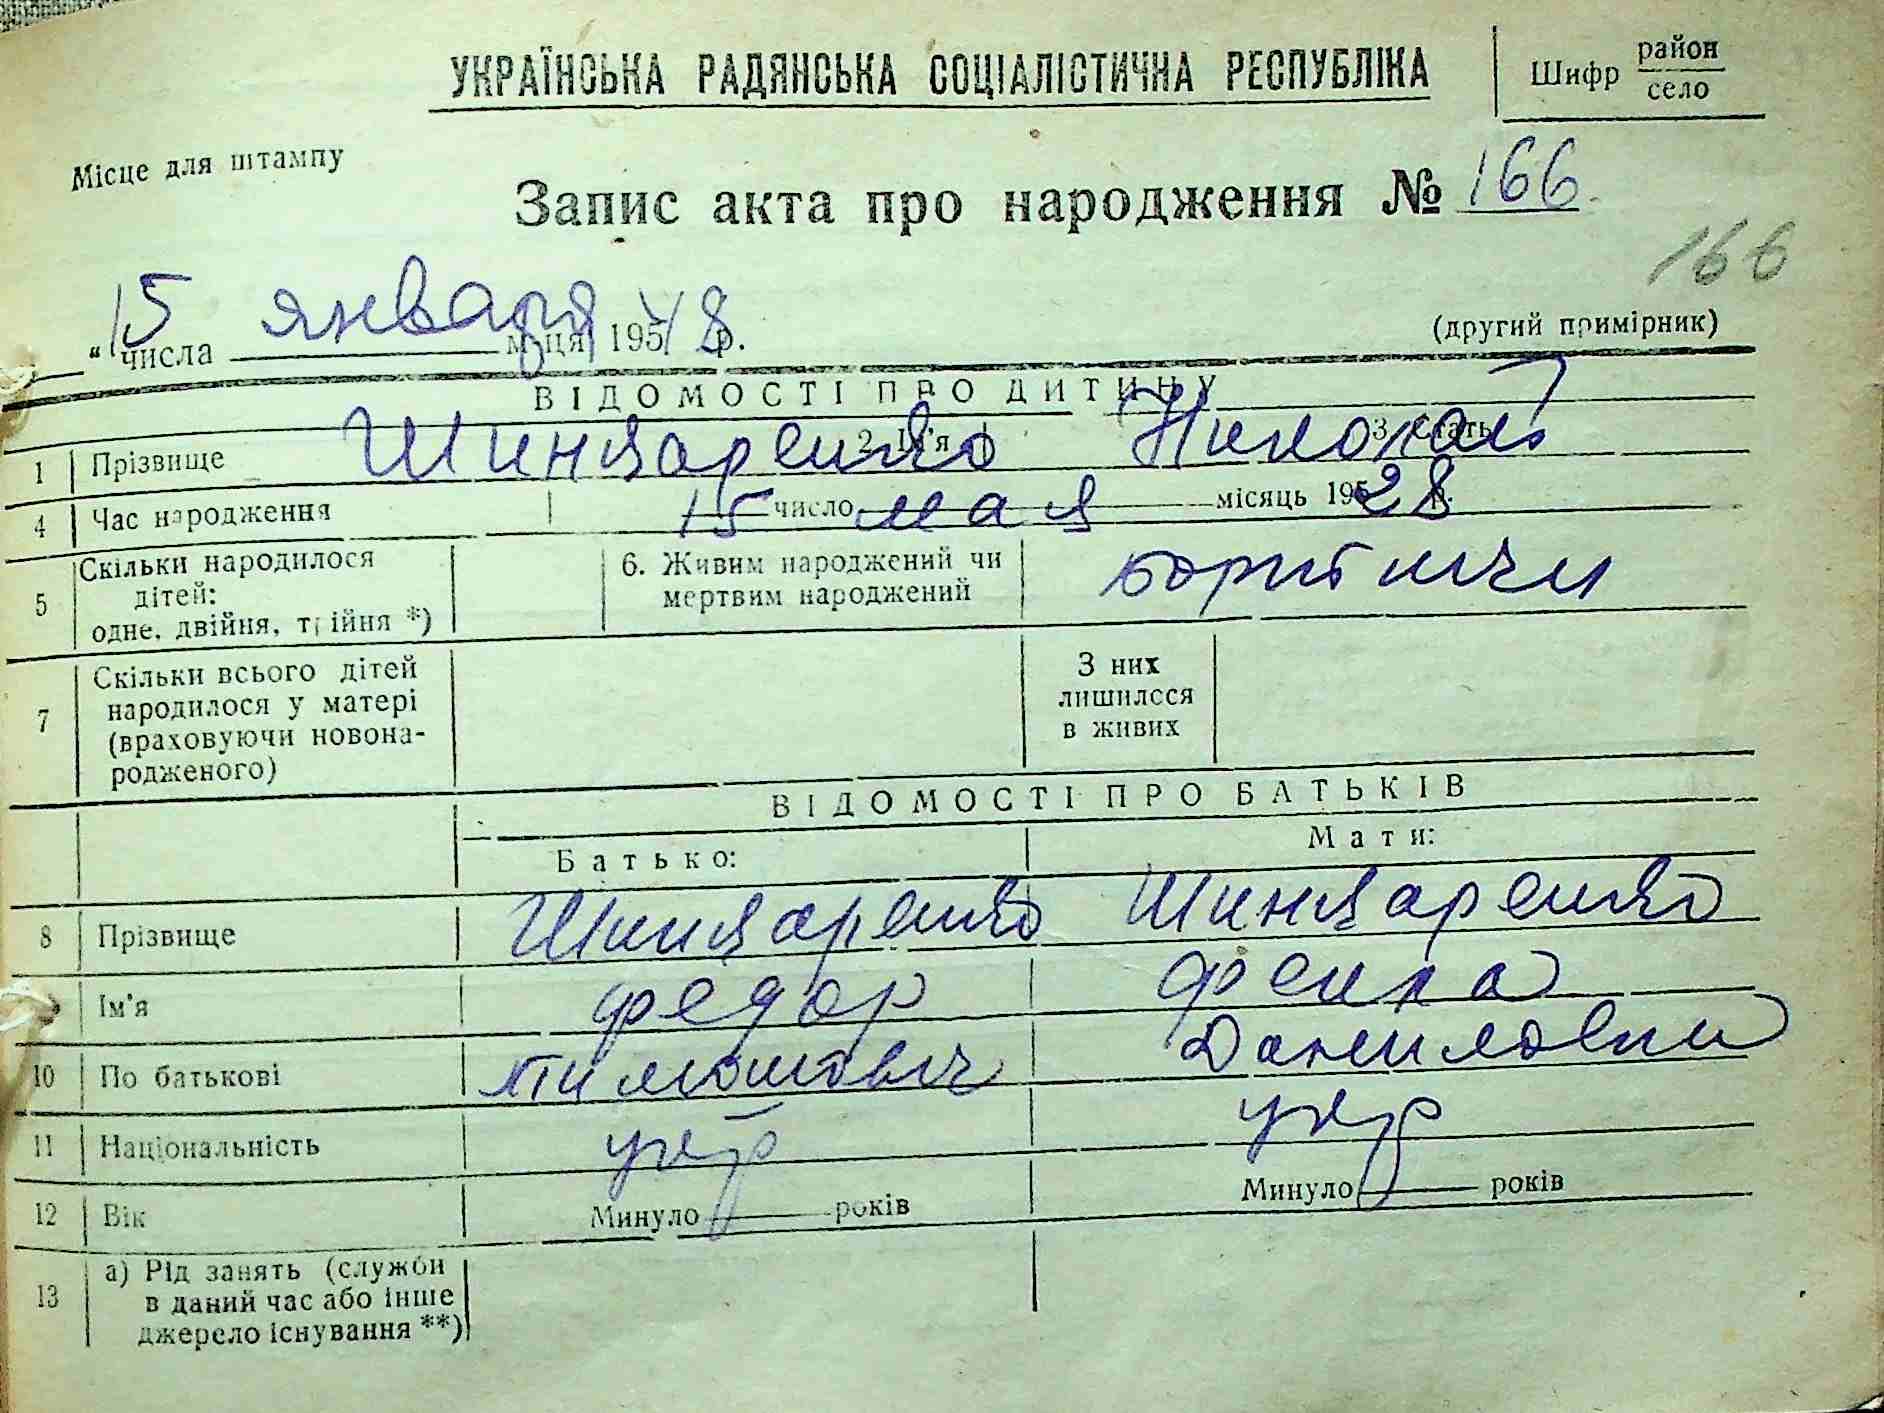 УКРАЇНСЬКА РАДЯНСЬКА СОЦІАЛІСТИЧНА РЕСПУБЛІКА
Шифр район
село
Місце для штампу
Запис акта про народження № 166
166
"15 числа января м-ця 195 48 р.
(другий примірник)
ВІДОМОСТІ ПРО ДИТИНУ
1 Прізвище Шинкаренко 2. Ім'я Николай 3. Стать
4 Час народження 15 число мая місяць 195 28 р.
5 Скільки народилося дітей: одне, двійня, трійня *)
6. Живим народжений чи мертвим народжений
7 Скільки всього дітей народилося у матері (враховуючи новонародженого)
З них лишилося в живих
ВІДОМОСТІ ПРО БАТЬКІВ
Батько: Мати:
8 Прізвище Шинкаренко Шинкаренко
9 Ім'я Федор
10 По батькові Даниловна
11 Національність укр укр
12 Вік Минуло років Минуло років
13 а) Рід занять (служби в даний час або інше джерело існування **)